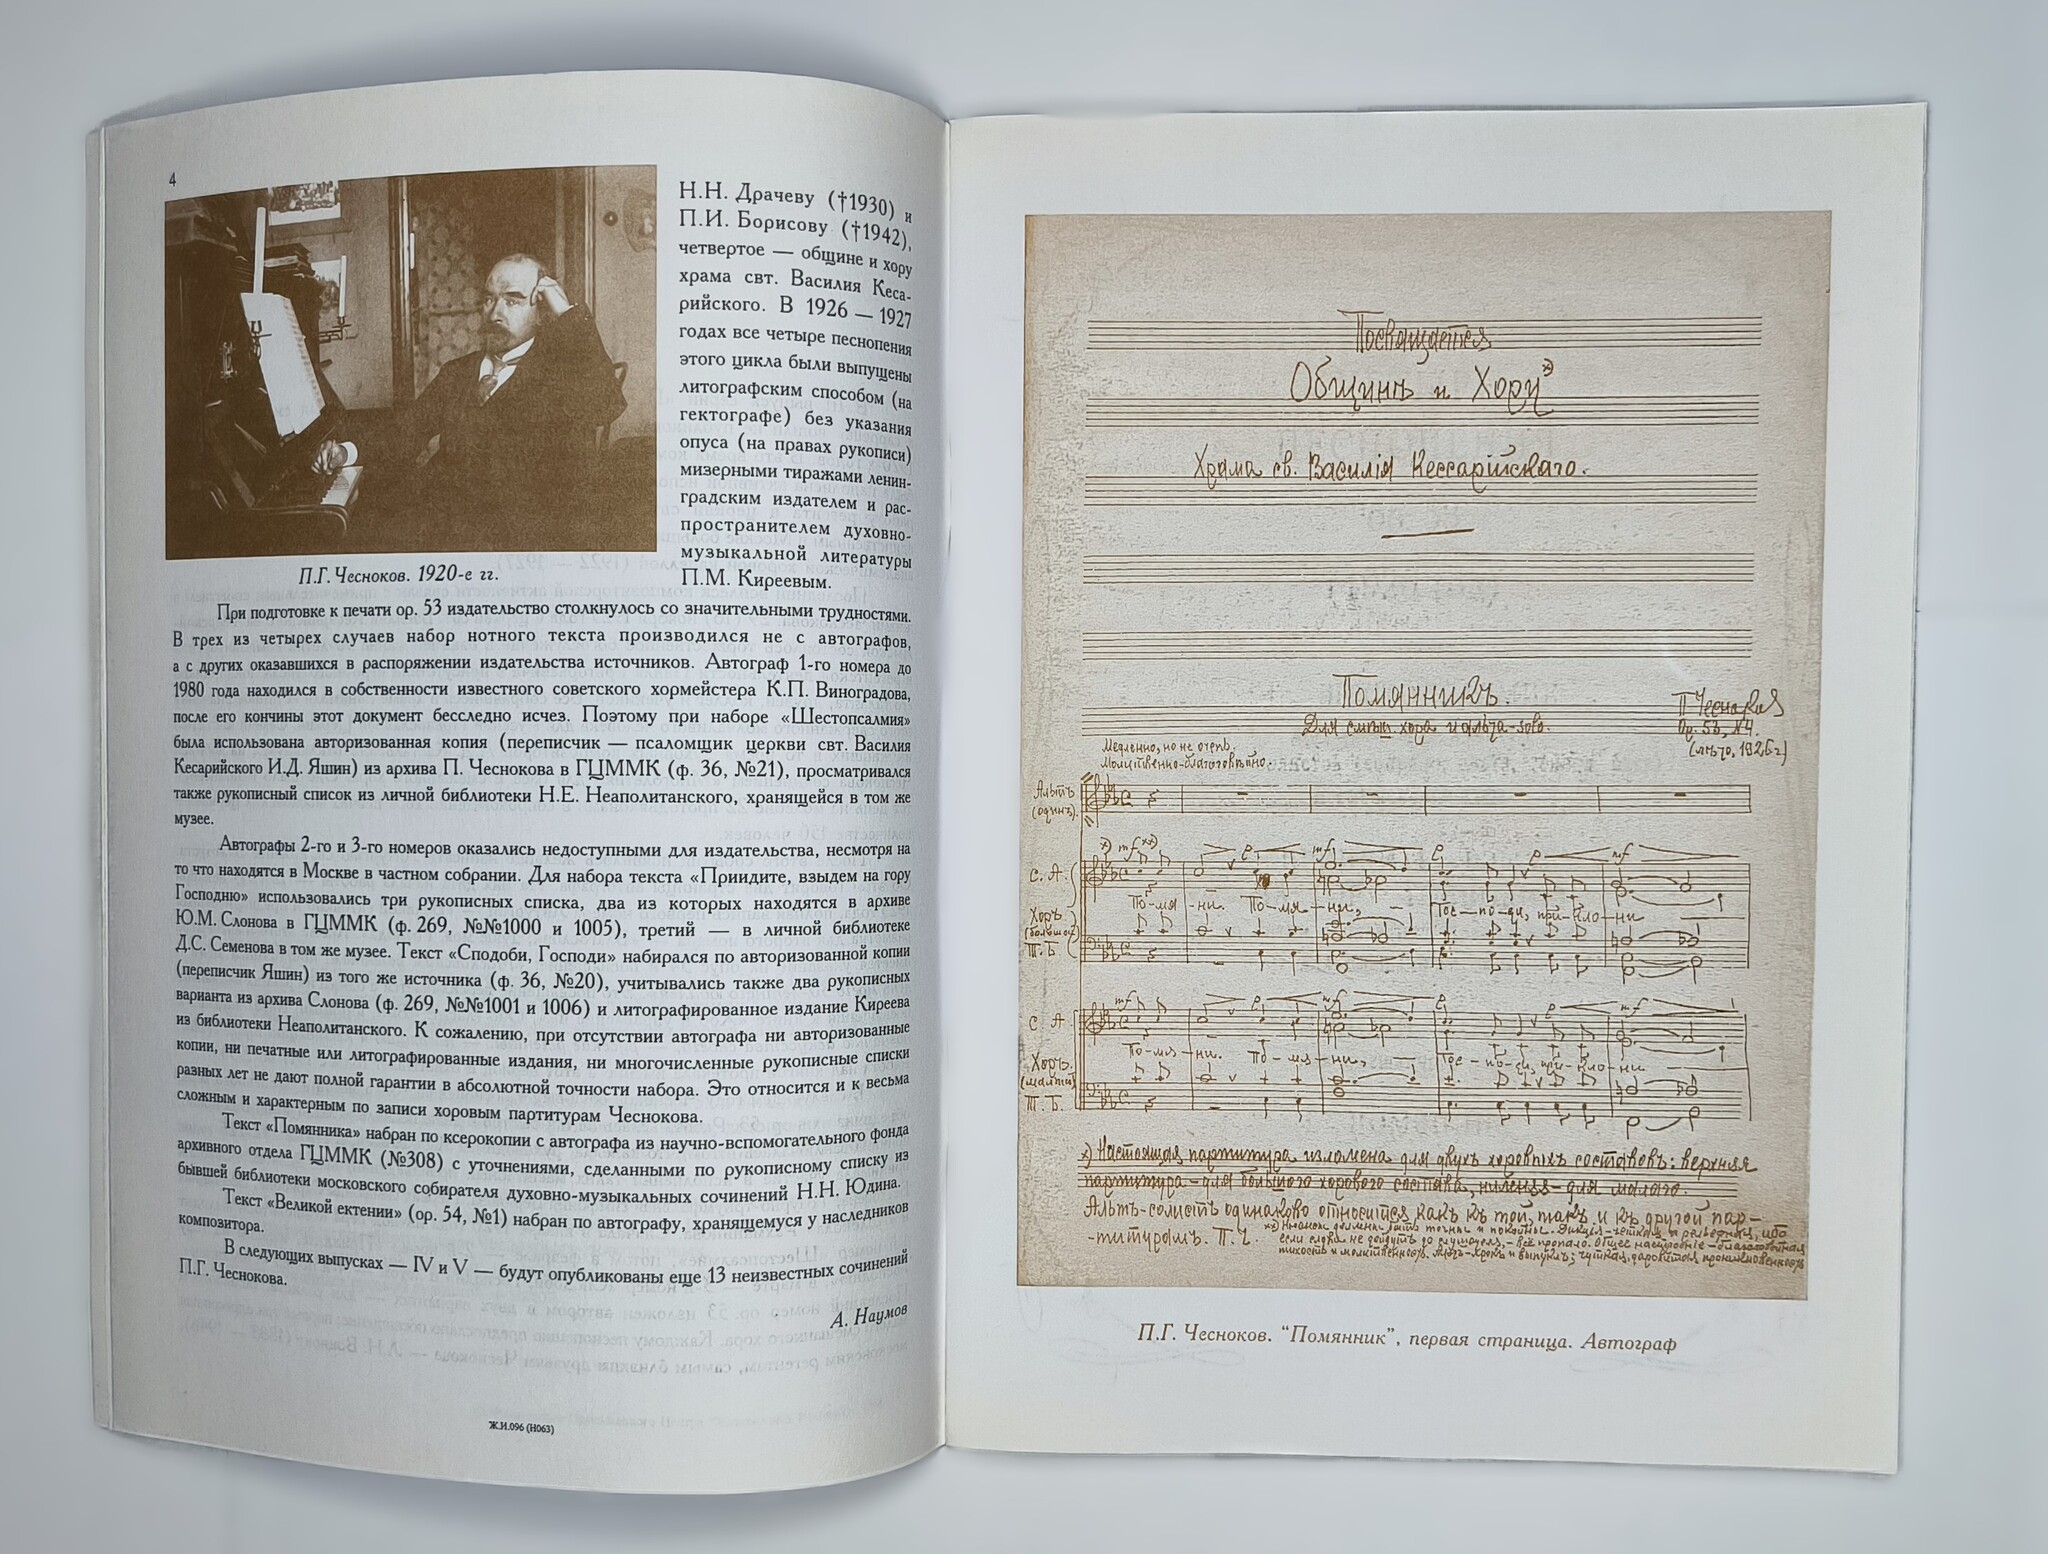 4
Н.Н. Драчеву (†1930) и
П.И. Борисову (†1942),
четвертое — общине и хору
храма свт. Василия Кеса-
рийского. В 1926 — 1927
годах все четыре песнопения
этого цикла были выпущены
литографским способом (на
гектографе) без указания
опуса (на правах рукописи)
мизерными тиражами ленин-
градским издателем и рас-
пространителем духовно-
музыкальной литературы
П.М. Киреевым.
П.Г. Чесноков. 1920-е гг.
При подготовке к печати op. 53 издательство столкнулось со значительными трудностями.
В трех из четырех случаев набор нотного текста производился не с автографов,
а с других оказавшихся в распоряжении издательства источников. Автограф 1-го номера до
1980 года находился в собственности известного советского хормейстера К.П. Виноградова,
после его кончины этот документ бесследно исчез. Поэтому при наборе «Шестопсалмия»
была использована авторизованная копия (переписчик — псаломщик церкви свт. Василия
Кесарийского И.Д. Яшин) из архива П. Чеснокова в ГЦММК (ф. 36, №21), просматривался
также рукописный список из личной библиотеки Н.Е. Неаполитанского, хранящейся в том же
музее.
Автографы 2-го и 3-го номеров оказались недоступными для издательства, несмотря на
то что находятся в Москве в частном собрании. Для набора текста «Приидите, взыдем на гору
Господню» использовались три рукописных списка, два из которых находятся в архиве
Ю.М. Слонова в ГЦММК (ф. 269, №№1000 и 1005), третий — в личной библиотеке
Д.С. Семенова в том же музее. Текст «Сподоби, Господи» набирался по авторизованной копии
(переписчик Яшин) из того же источника (ф. 36, №20), учитывались также два рукописных
варианта из архива Слонова (ф. 269, №№1001 и 1006) и литографированное издание Киреева
из библиотеки Неаполитанского. К сожалению, при отсутствии автографа ни авторизованные
копии, ни печатные или литографированные издания, ни многочисленные рукописные списки
разных лет не дают полной гарантии в абсолютной точности набора. Это относится и к весьма
сложным и характерным по записи хоровым партитурам Чеснокова.
Текст «Помянника» набран по ксерокопии с автографа из научно-вспомогательного фонда
архивного отдела ГЦММК (№308) с уточнениями, сделанными по рукописному списку из
бывшей библиотеки московского собирателя духовно-музыкальных сочинений Н.Н. Юдина.
Текст «Великой ектении» (op. 54, №1) набран по автографу, хранящемуся у наследников
композитора.
В следующих выпусках — IV и V — будут опубликованы еще 13 неизвестных сочинений
П.Г. Чеснокова.
А. Наумов
Ж.И.096 (Н063)
Посвящается
Общинѣ и Хору x)
Храма св. Василія Кессарійскаго.
Помянникъ.
Для смѣш. хора и альта-solo.
П Чесноков
Op. 53, №4.
(лѣто, 1926г)
Медленно, но не очень.
Молитвенно-благоговѣйно.
Альтъ
(одинъ).
x) mf xx) p mf p p mf
С. А.
По-мя-ни. По-мя-ни, Гос-по-ди, при-кло-ни
Хоръ
(большой)
Т. Б
mf p mf p p mf
С А
По-мя-ни. По-мя-ни, Гос-по-ди, при-кло-ни
Хоръ.
(малый)
Т. Б.
x) Настоящая партитура изложена для двухъ хоровыхъ составовъ: верхняя
партитура - для большого хорового состава, нижняя - для малого.
Альтъ-солистъ одинаково относится какъ къ той, такъ и къ другой пар-
-титурамъ. П. Ч.
xx) Нюансы должны быть точны и покойны. Дикція - четкая и рельефная, ибо
если слова не дойдутъ до слушателя, - всё пропало. Общее настроеніе - благоговѣйная
тихость и молитвенность.
П.Г. Чесноков. “Помянник”, первая страница. Автограф